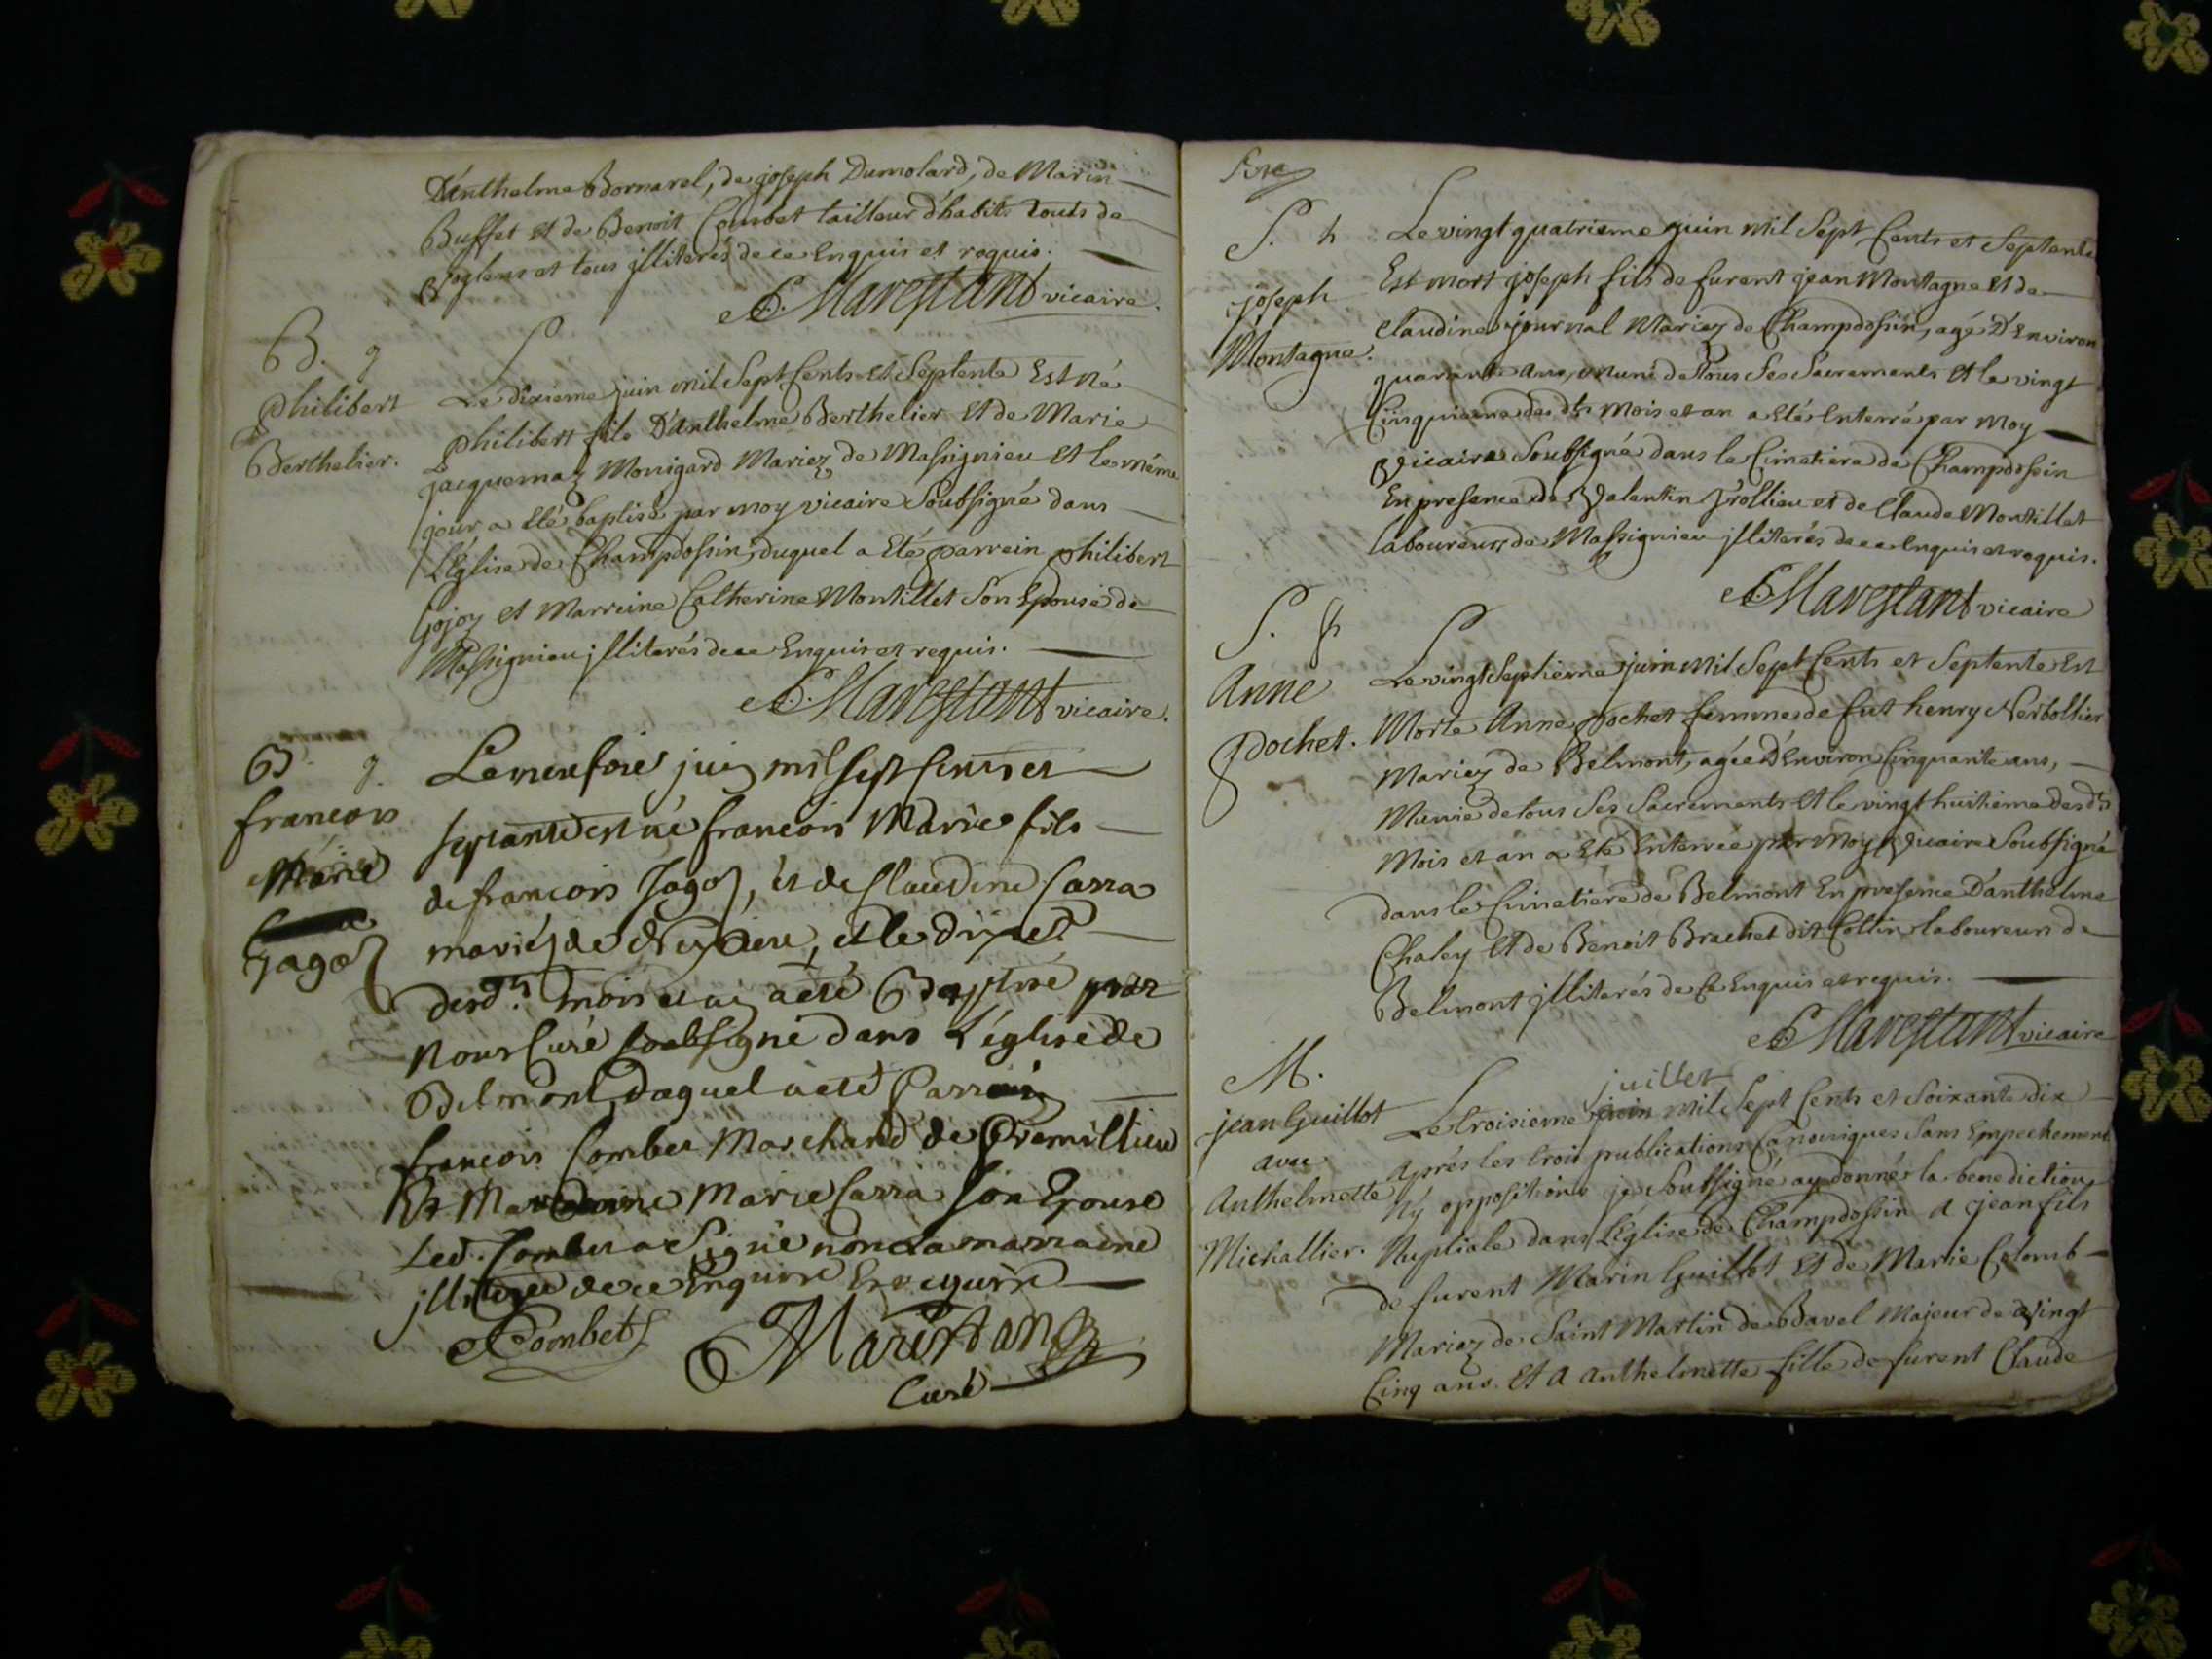 D'Anthelme Bornarel, de joseph Dumolard, de Marin
Buffet et de Benoit Combet tailleur d'habits touts de
et tous jlliterés de ce Enquis et requis.
Marestant vicaire.
B. g
philibert
Berthelier.
Le dixieme juin mil Sept Cents et Septente Est né
philibert fils D'Anthelme Berthelier et de Marie
jacquemaz Monigard Mariez de Massignieu et le même
jour a Eté baptisé par moy vicaire Soubsigné dans
L'Eglise de Champdossin, duquel a Eté parrein philibert
Gojoy et Marreine Catherine Montillet Son Epouse de
Massignieu jlliterés de ce Enquis et requis.
Marestant vicaire.
B. g.
francois
Marie
Jagoz
Le juin mil sept cents et
septante est né francois Marie fils
de francois Jagoz, et de Claudine Carra
mariéz de et le
desdts mois et an a eté Baptisé par
Nous Curé soubsigné dans L'église de
Belmont, duquel a eté Parrain
francois Combet Marchand de Premillieu
Et Marraine Marie Carra son Epouse
Led. Combet a Signé non La marraine
jlliterée de ce Enquise Et requise
Combet
Marestan
Curé
S. h
joseph
Montagne.
Le vingt quatrieme juin mil Sept Cents et Septente
Est mort joseph fils de furent jean Montagne et de
Claudine journal Mariez de Champdossin, agé D'Environ
quarante ans, muni de tous Ses Sacrements et le vingt
Cinquieme des dts Mois et an a Eté Enterré par moy
vicaire Soubsigné dans le Cimetiere de Champdossin
En presence de Valentin Trollieu et de Claude Montillet
laboureurs de Massignieu jlliterés de ce Enquis et requis.
Marestant vicaire
S. f
Anne
pochet.
Le vingt Septieme juin mil Sept Cents et Septente Est
Morte Anne pochet femme de fut henry Nerbollier
Mariez de Belmont, agée D'Environ Cinquante ans,
Munie de tous Ses Sacrements et le vingt huitieme des dts
Mois et an a Eté Enterrée par Moy vicaire Soubsigné
dans le Cimetiere de Belmont En presence D'anthelme
Chaley et de Benoit Brachet dit Collin laboureurs de
Belmont jlliterés de Ce Enquis et requis.
Marestant vicaire
M.
jean Guillot
avec
Anthelmette
Michallier.
juillet
Le troisieme juin mil Sept Cents et Soixante dix
Aprés les trois publications Canoniques Sans Empechement
Ny opposition je Soubsigné ay donné la benediction
Nuptiale dans L'Eglise de Champdossin a jean fils
de furent Marin Guillot et de Marie Colomb
Mariez de Saint Martin de Bavel Majeur de vingt
Cinq ans. Et a Anthelmette fille de furent Claude